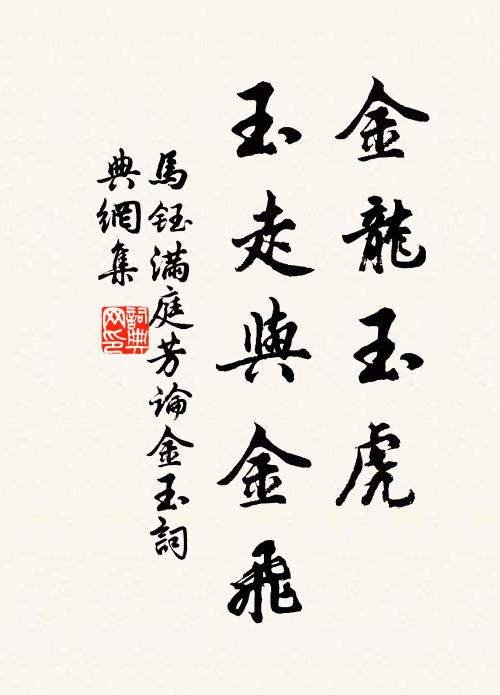 金龍玉虎
玉走與金飛
馬鈺滿庭芳論金玉詞
典網集
詞典
网印